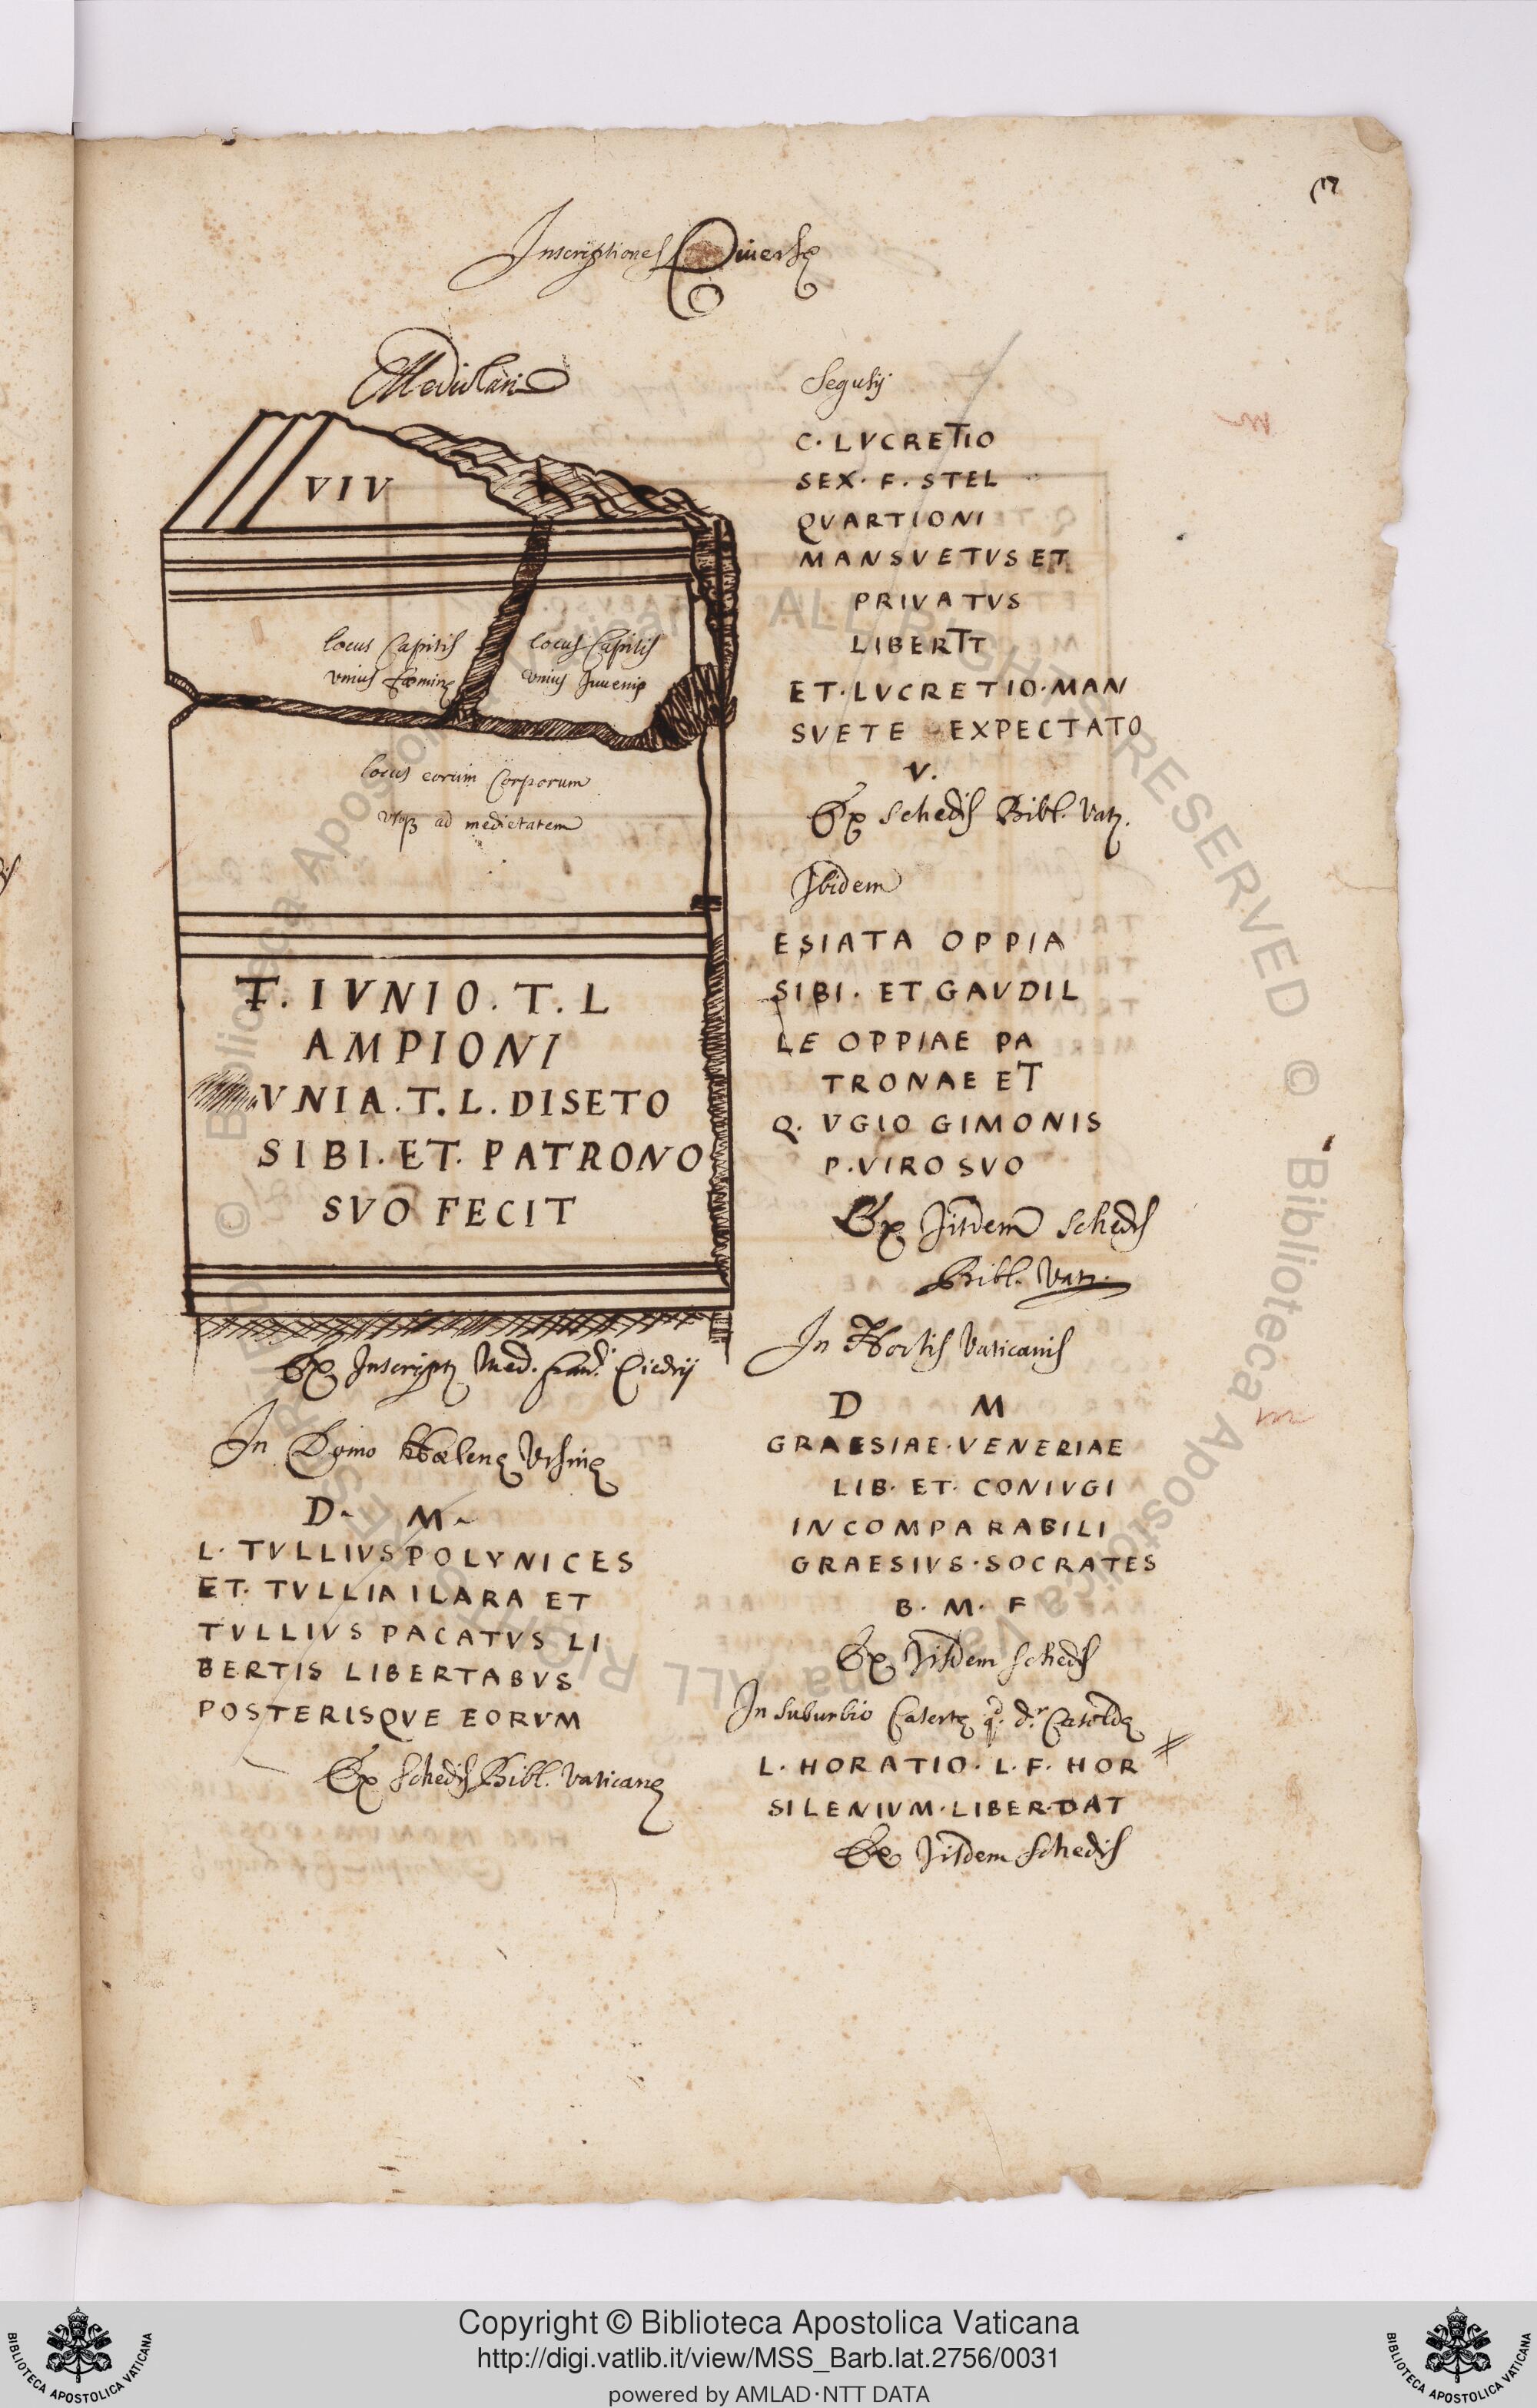 17
Inscriptiones Diuersę
Mediolani
VIV
locus Capitis
vnius fœminę
locus Capitis
vnius Juuenis
locus eorum Corporum
vsq3 ad medietatem
T. IVNIO. T. L
AMPIONI
VNIA. T. L. DISETO
SIBI. ET. PATRONO
SVO FECIT
Ex Inscript Med.
In Domo Vrsinę
D. M.
L. TVLLIVS POLYNICES
ET. TVLLIA ILARA ET
TVLLIVS PACATVS LI
BERTIS LIBERTABVS
POSTERISQVE EORVM
Ex Schedis Bibl. Vaticanę
Segusij
C. LVCRETIO
SEX. F. STEL
QVARTIONI
MANSVETVS ET
PRIVATVS
LIBERTI
ET. LVCRETIO. MAN
SVETE EXPECTATO
V.
Ex Schedis Bibl. Vat.
Ibidem
ESIATA OPPIA
SIBI. ET GAVDIL
LE OPPIAE PA
TRONAE ET
Q. VGIO GIMONIS
P. VIRO SVO
Ex Jisdem Schedis
Bibl. Vat.
In Hortis Vaticanis
D M
GRAESIAE. VENERIAE
LIB. ET. CONIVGI
INCOMPARABILI
GRAESIVS. SOCRATES
B. M. F
Ex Jisdem Schedis
In suburbio Casertę
L. HORATIO. L. F. HOR
SILENIVM. LIBER. DAT
Ex Jisdem Schedis
© Biblioteca Apostolica Vaticana ALL RIGHTS RESERVED
Copyright © Biblioteca Apostolica Vaticana
http://digi.vatlib.it/view/MSS_Barb.lat.2756/0031
powered by AMLAD·NTT DATA
BIBLIOTECA APOSTOLICA VATICANA
BIBLIOTECA APOSTOLICA VATICANA